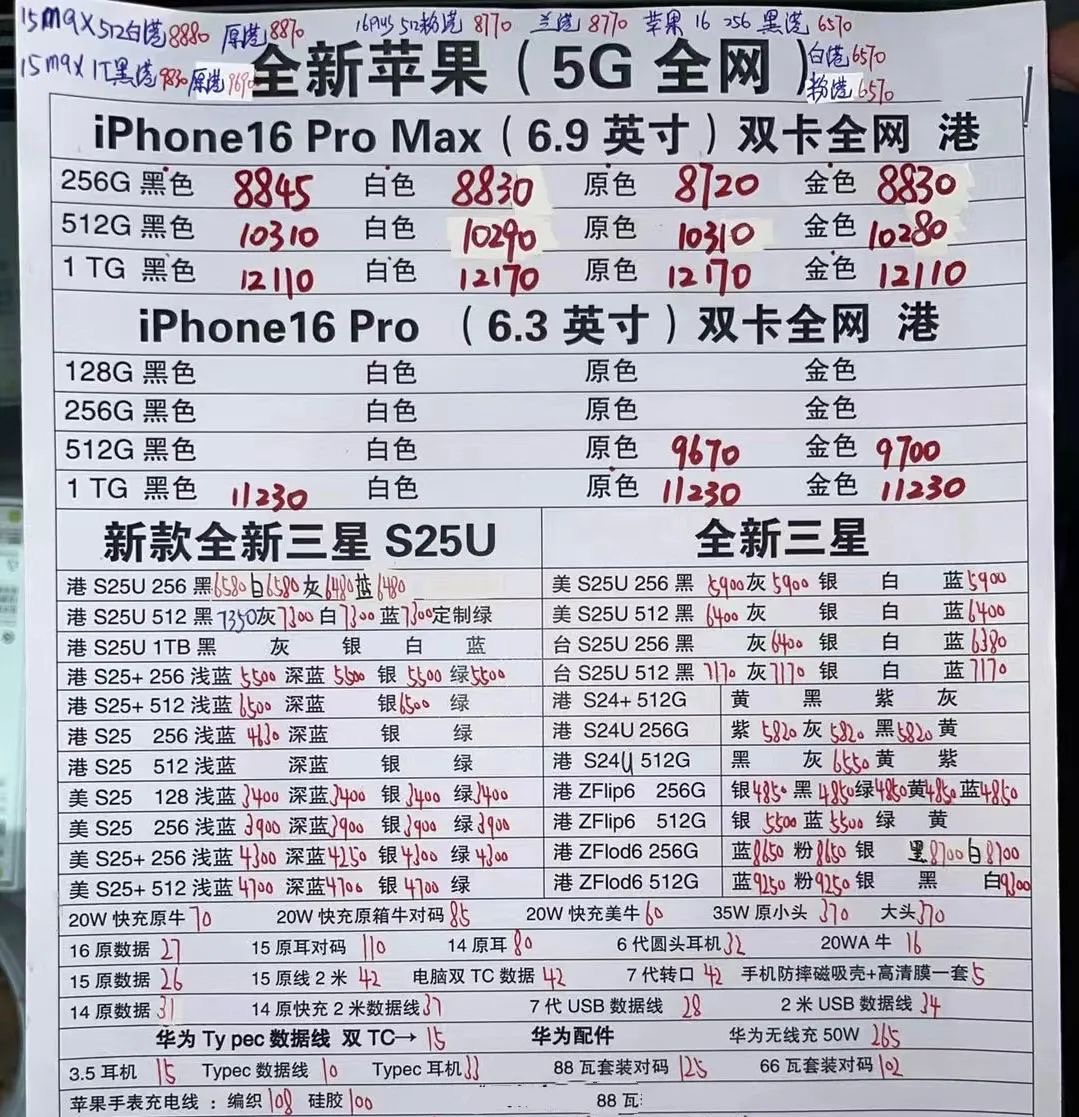 15max512白港8880 原港8870 16Plus512粉港8770 兰港8770 苹果16 256 黑港6570
15max 1T黑港9830 原港9690 白港6570
粉港6570
全新苹果（5G 全网）
iPhone16 Pro Max（6.9 英寸）双卡全网 港
256G 黑色 8845 白色 8830 原色 8720 金色 8830
512G 黑色 10310 白色 10290 原色 10310 金色 10280
1 TG 黑色 12110 白色 12170 原色 12170 金色 12110
iPhone16 Pro （6.3 英寸）双卡全网 港
128G 黑色 白色 原色 金色
256G 黑色 白色 原色 金色
512G 黑色 白色 原色 9670 金色 9700
1 TG 黑色 11230 白色 原色 11230 金色 11230
新款全新三星 S25U
港 S25U 256 黑6580白6580灰6480蓝6480
港 S25U 512 黑7350灰7300白7300蓝7300定制绿
港 S25U 1TB 黑 灰 银 白 蓝
港 S25+ 256 浅蓝 5500 深蓝 5500 银 5500 绿5500
港 S25+ 512 浅蓝 6500 深蓝 银6500 绿
港 S25 256 浅蓝 4630 深蓝 银 绿
港 S25 512 浅蓝 深蓝 银 绿
美 S25 128 浅蓝 3400 深蓝3400 银3400 绿3400
美 S25 256 浅蓝 3900 深蓝3900 银3900 绿3900
美 S25+ 256 浅蓝 4300 深蓝4250 银4300 绿4300
美 S25+ 512 浅蓝 4700 深蓝4700 银4700 绿
全新三星
美 S25U 256 黑 5900灰5900 银 白 蓝5900
美 S25U 512 黑 6400灰 银 白 蓝6400
台 S25U 256 黑 灰6400 银 白 蓝6380
台 S25U 512 黑 7170 灰7170 银 白 蓝7170
港 S24+ 512G 黄 黑 紫 灰
港 S24U 256G 紫 5820 灰5820 黑5820黄
港 S24U 512G 黑 灰 6550黄 紫
港 ZFlip6 256G 银4850 黑 4850绿4850黄4850 蓝4850
港 ZFlip6 512G 银 5500 蓝5500 绿 黄
港 ZFlod6 256G 蓝8650 粉8650 银 黑8700白8700
港 ZFlod6 512G 蓝9250 粉9250银 黑 白9300
20W 快充原牛70 20W 快充原箱牛对码85 20W 快充美牛60 35W 原小头 370 大头370
16 原数据 27 15 原耳对码 110 14 原耳80 6 代圆头耳机32 20WA 牛 16
15 原数据 26 15 原线 2 米 42 电脑双 TC 数据 42 7 代转口 42 手机防摔磁吸壳+高清膜一套5
14 原数据31 14 原快充 2 米数据线37 7 代 USB 数据线 28 2 米 USB 数据线 34
华为 Ty pec 数据线 双 TC→ 15 华为配件 华为无线充 50W 265
3.5 耳机 15 Typec 数据线 10 Typec 耳机33 88 瓦套装对码125 66 瓦套装对码102
苹果手表充电线：编织108 硅胶100 88 瓦